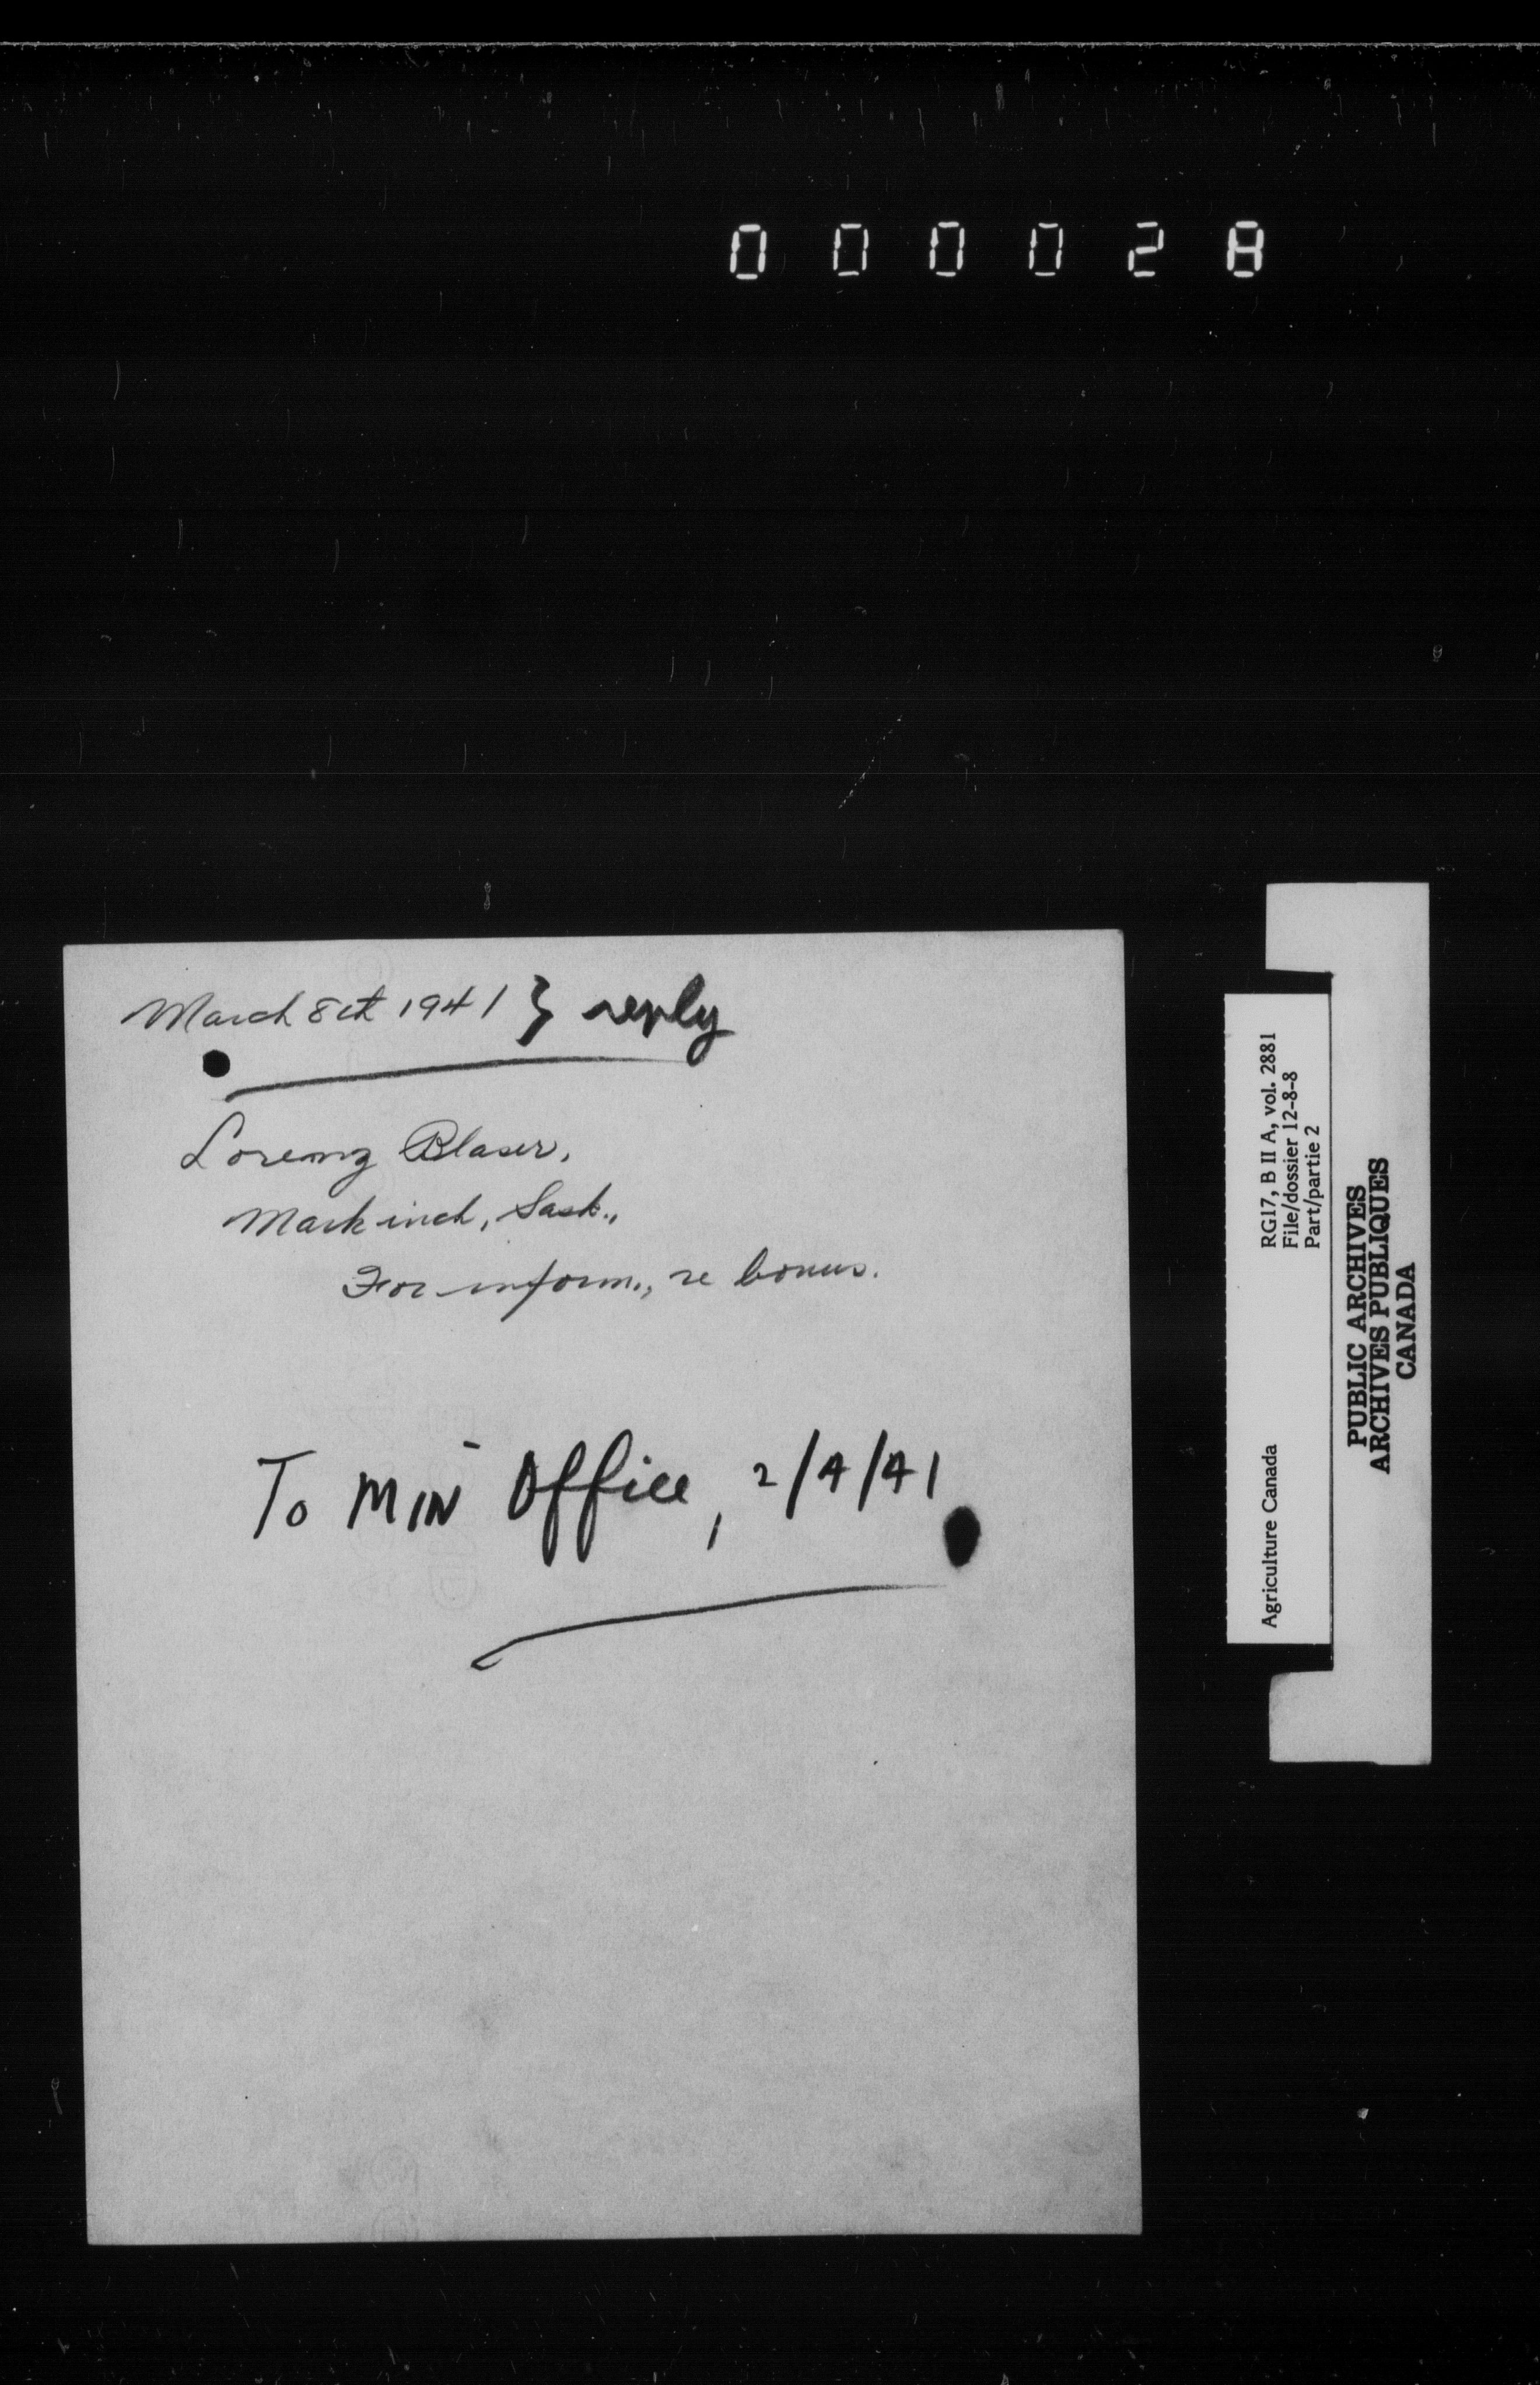 000028
March 8th 1941 } reply
Lorenz Blaser,
Markinch, Sask.,
For inform., re bonus.
To MIN Office, 2/4/41
Agriculture Canada
RG17, B II A, vol. 2881
File/dossier 12-8-8
Part/partie 2
PUBLIC ARCHIVES
ARCHIVES PUBLIQUES
CANADA